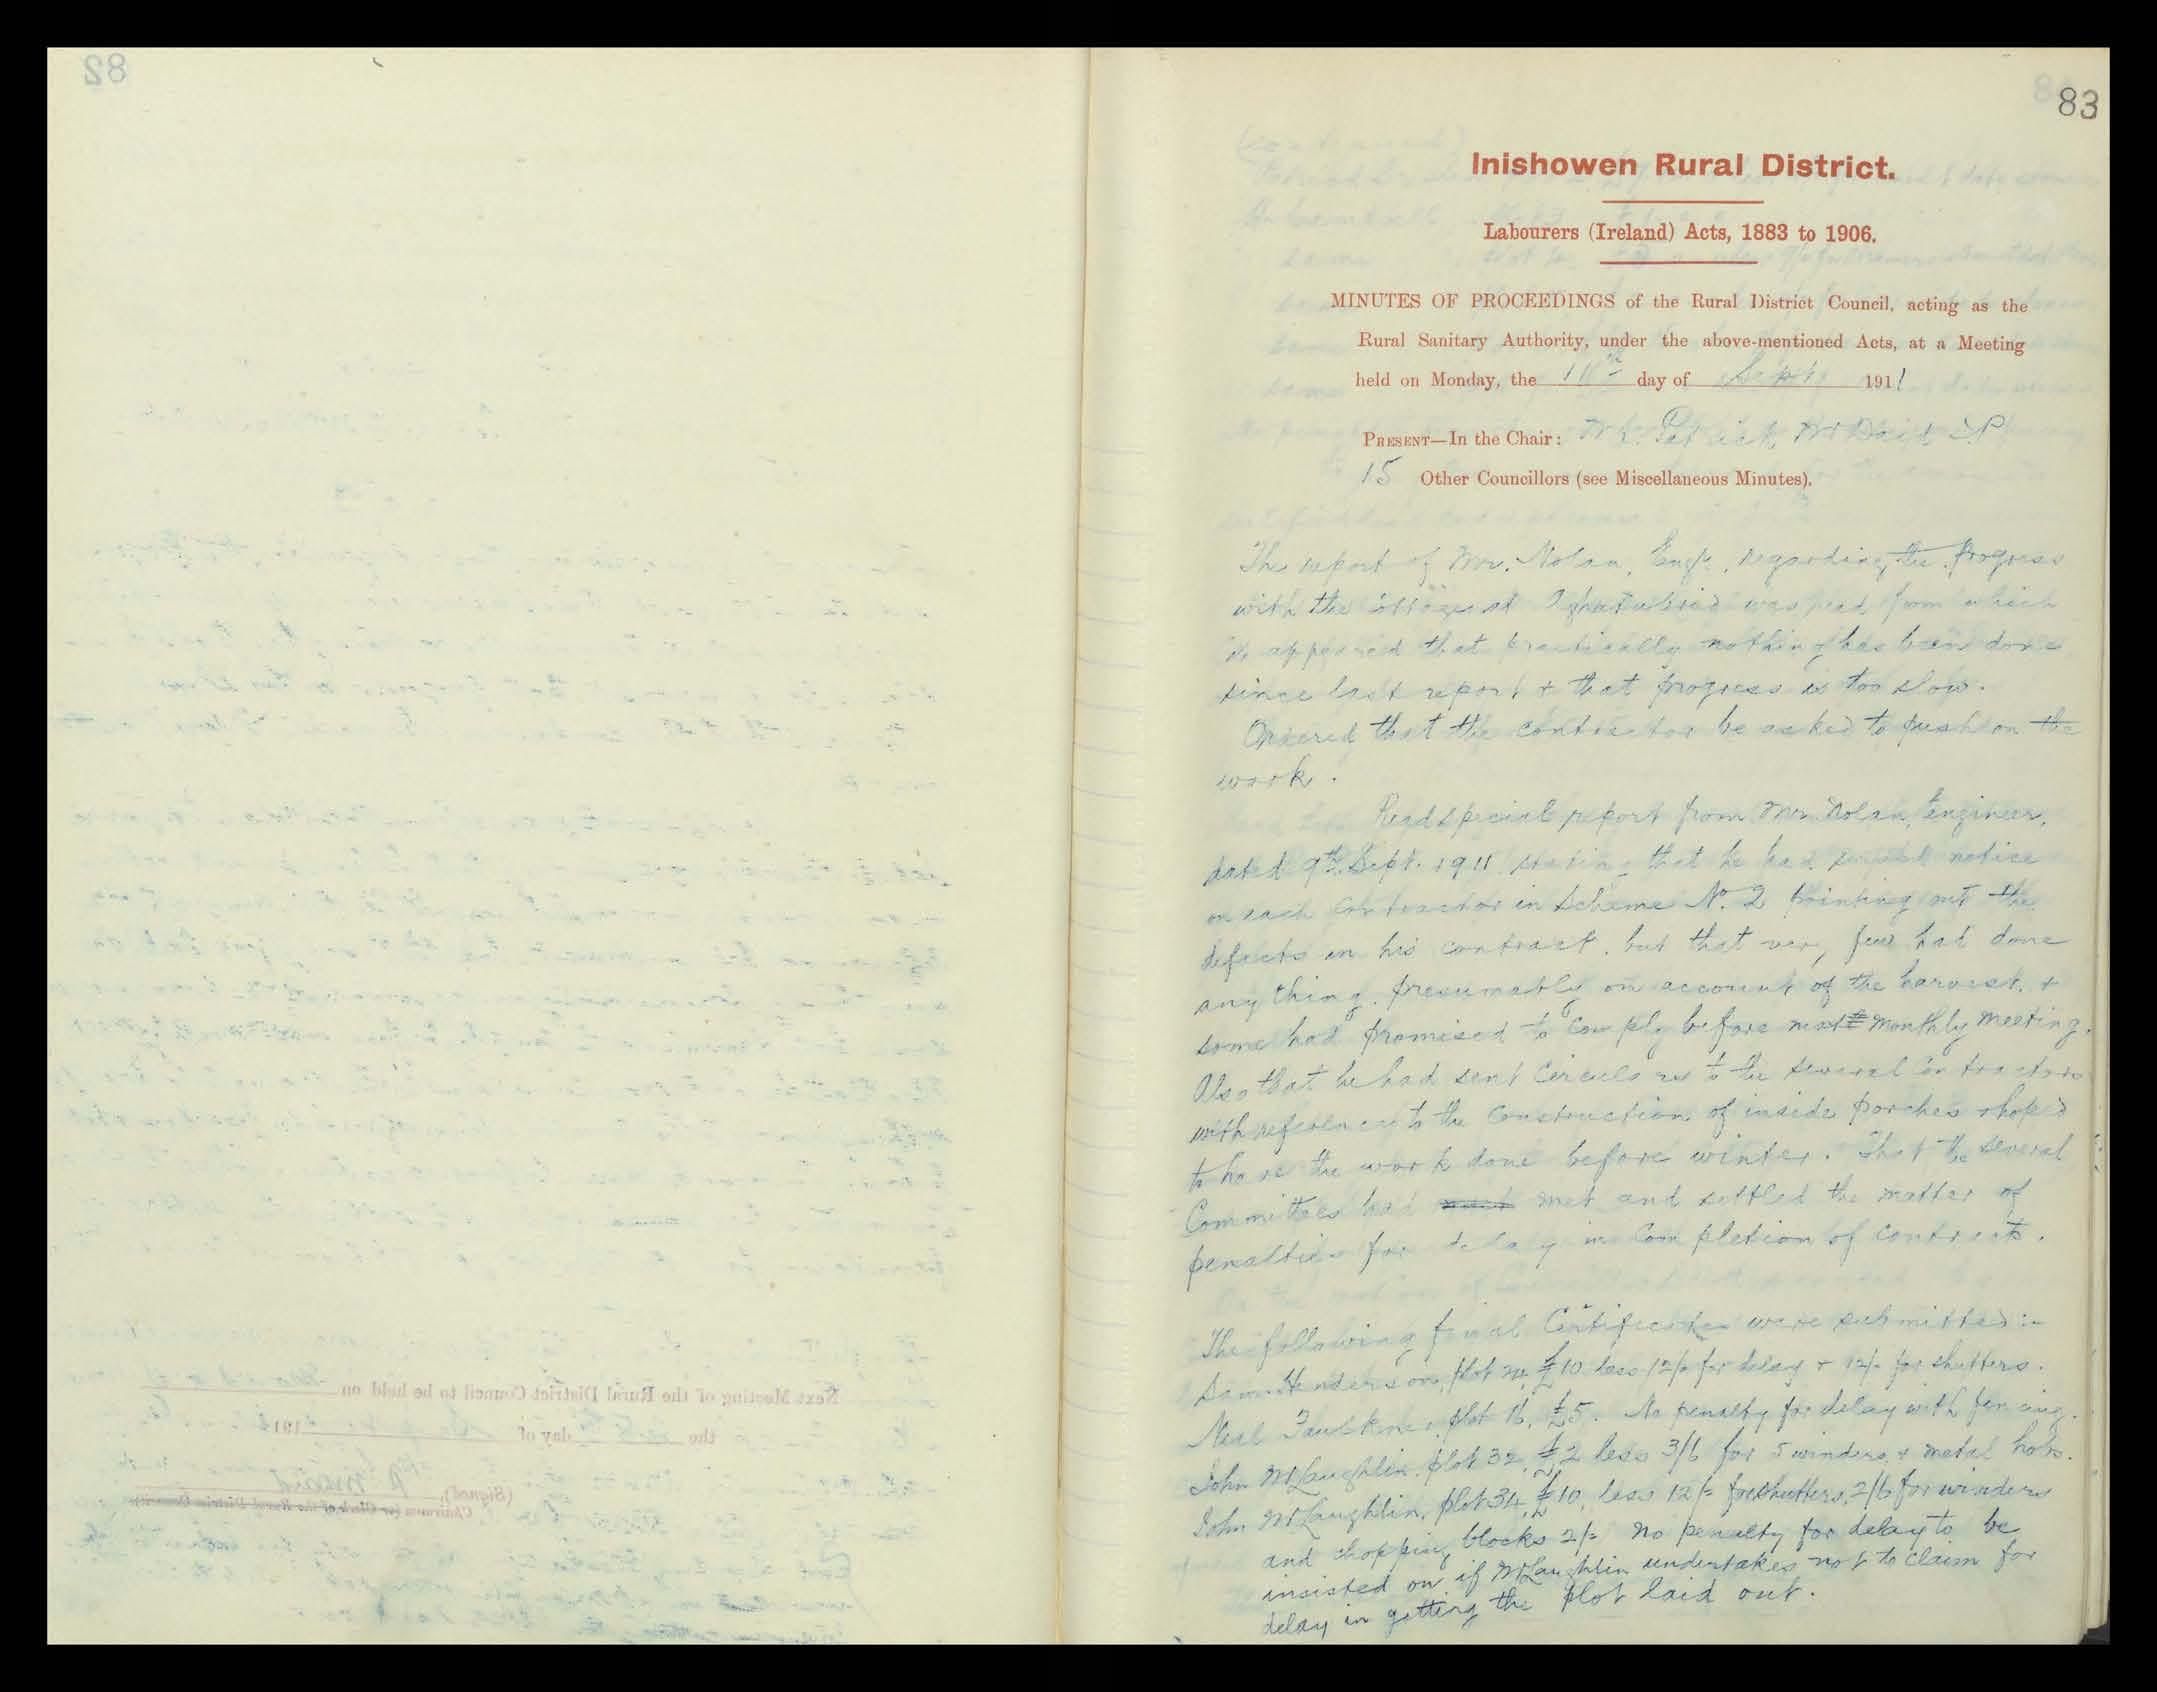 83
Inishowen Rural District.
Labourers (Ireland) Acts, 1883 to 1906.
MINUTES OF PROCEEDINGS of the Rural District Council, acting as the
Rural Sanitary Authority, under the above-mentioned Acts, at a Meeting
held on Monday, the day of Sept 1911
PRESENT—In the Chair: Mr. Patrick McDaid J.P
15 Other Councillors (see Miscellaneous Minutes).
The report of Mr. Nolan, Engr, regarding the progress
with the cottages at was read from which
it appeared that practically nothing has been done
since last report & that progress is too slow.
Ordered that the contractor be asked to push on the
work.
Read special report from Mr Nolan, Engineer,
dated 9th Sept. 1911 stating that he had served notice
on each contractor in Scheme No. 2 pointing out the
defects in his contract, but that very few had done
anything, presumably on account of the harvest, &
some had promised to comply before next monthly meeting.
Also that he had sent circulars to the several contractors
with reference to the construction of inside porches & hoped
to have the work done before winter. That the several
Committees had met and settled the matter of
penalties for delay in completion of contracts.
The following final Certificates were submitted:-
Saml Henderson, plot £10 less 12/- for delay & 12/- for shutters.
Neal Faulkner, plot 16, £5. No penalty for delay with fencing.
John McLaughlin, plot 32, £2 less 3/6 for 5 winders & metal hobs.
John McLaughlin, plot 34, £10, less 12/- for shutters, 2/6 for winders
and chopping blocks 2/- No penalty for delay to be
insisted on if McLaughlin undertakes not to claim for
delay in getting the plot laid out.